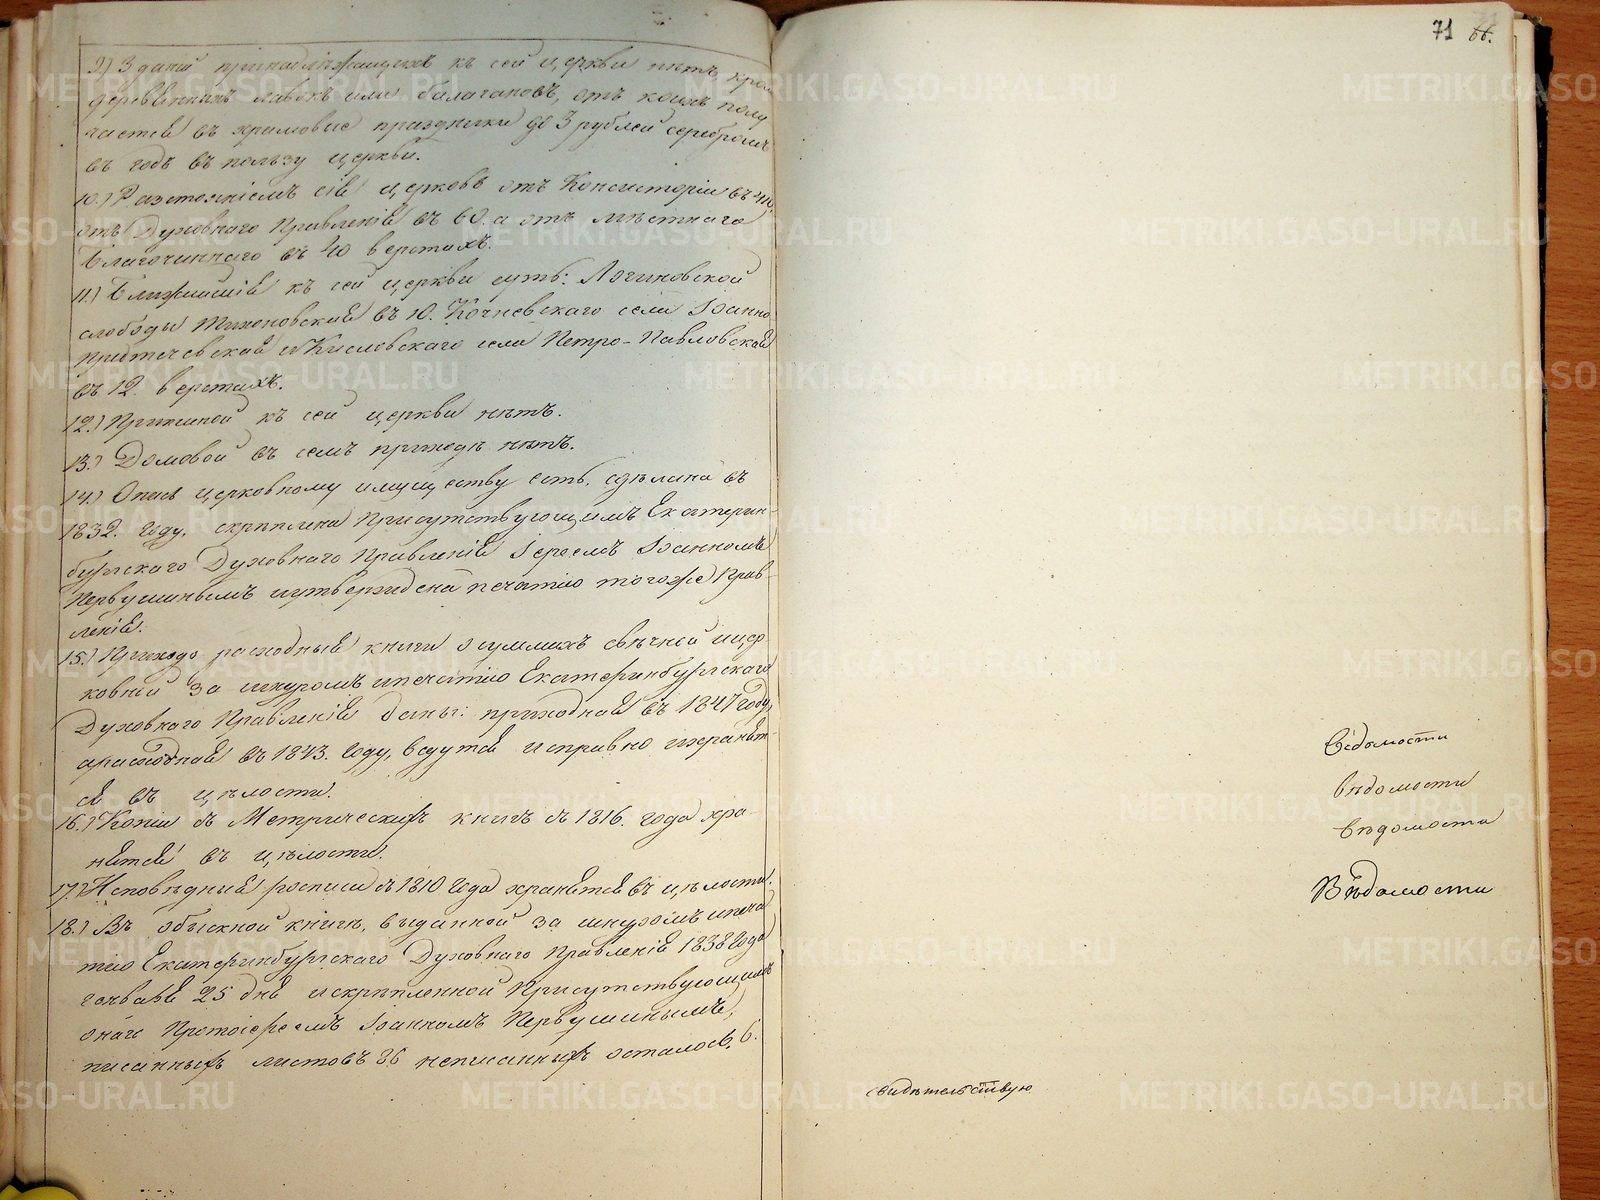 9.) Зданій принадлѣжащихъ къ сей церкви нѣтъ, кромѣ
деревянныхъ лавокъ или балагановъ, отъ коихъ полу
чается въ храмовые праздники до 3 рублей серебромъ
въ годъ въ пользу церкви.
10.) Разстояніемъ сія церковь отъ Консисторіи въ
отъ Духовнаго Правленія въ 60. а отъ мѣстнаго
Благочиннаго въ 40 верстахъ.
11.) Ближайшія къ сей церкви суть: Логиновской
слободы Тихоновская въ 10. Кочневскаго села Іоанно
Предтечевская и Кисловскаго села Петро-Павловская
въ 12. верстахъ.
12.) Приписной къ сей церкви нѣтъ.
13.) Домовой въ семъ приходѣ нѣтъ.
14.) Опись церковному имуществу есть, сдѣлана въ
1832. году, скрѣплена Присутствующимъ Екатерин-
бургскаго Духовнаго Правленія Іереемъ Іоанномъ
Первушинымъ и утверждена печатію тогоже Прав-
ленія.
15.) Приходо расходныя книги о суммахъ свѣчной и цер-
ковной за шнуромъ и печатію Екатеринбургскаго
Духовнаго Правленія даны: приходная въ 1847 году,
а расходная въ 1843. году, ведутся исправно и хранят-
ся въ цѣлости.
16.) Копіи съ Метрическихъ книгъ съ 1816. года хра-
нятся въ цѣлости.
17.) Исповѣдныя росписи съ 1810 года хранятся въ цѣлости.
18.) Въ обыскной книгѣ, выданной за шнуромъ и печа
тію Екатеринбургскаго Духовнаго Правленія 1838 года
25 дня и скрѣпленной Присутствующимъ
онаго Протоіереемъ Іоанномъ Первушинымъ,
писанныхъ листовъ 86 неписанныхъ осталось 6.
71 66.
Вѣдомости
вѣдомости
вѣдомости
Вѣдомости
свидѣтельствую
METRIKI.GASO-URAL.RU